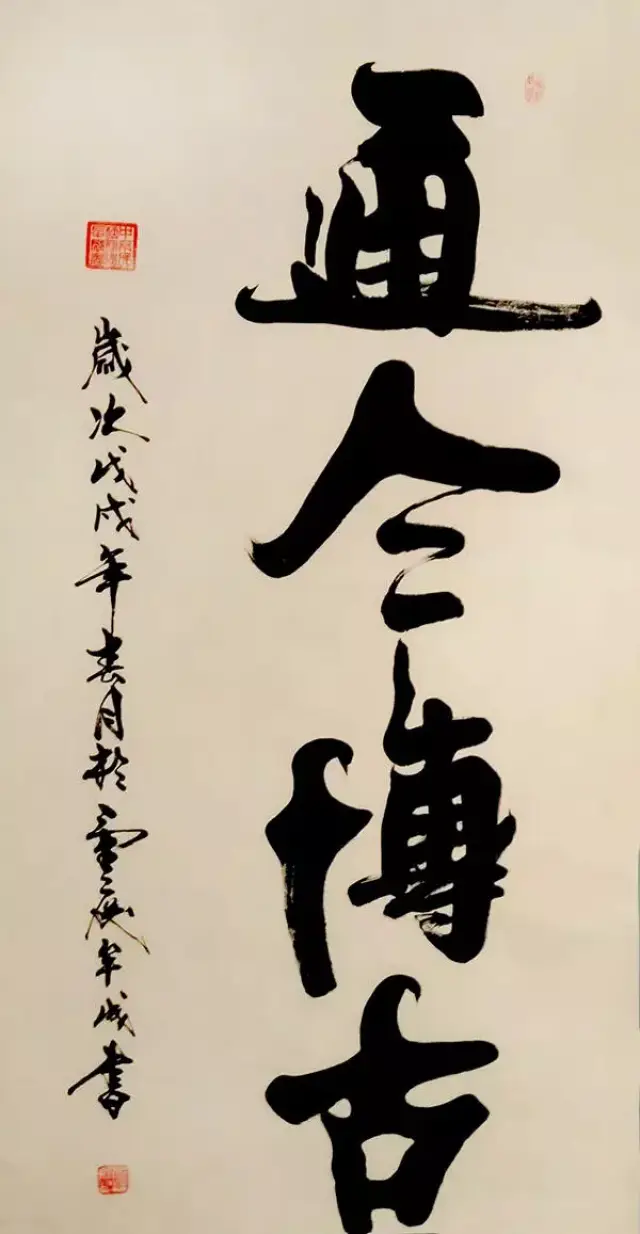 通今博古
歲次戊戌年春月於雲牟成書